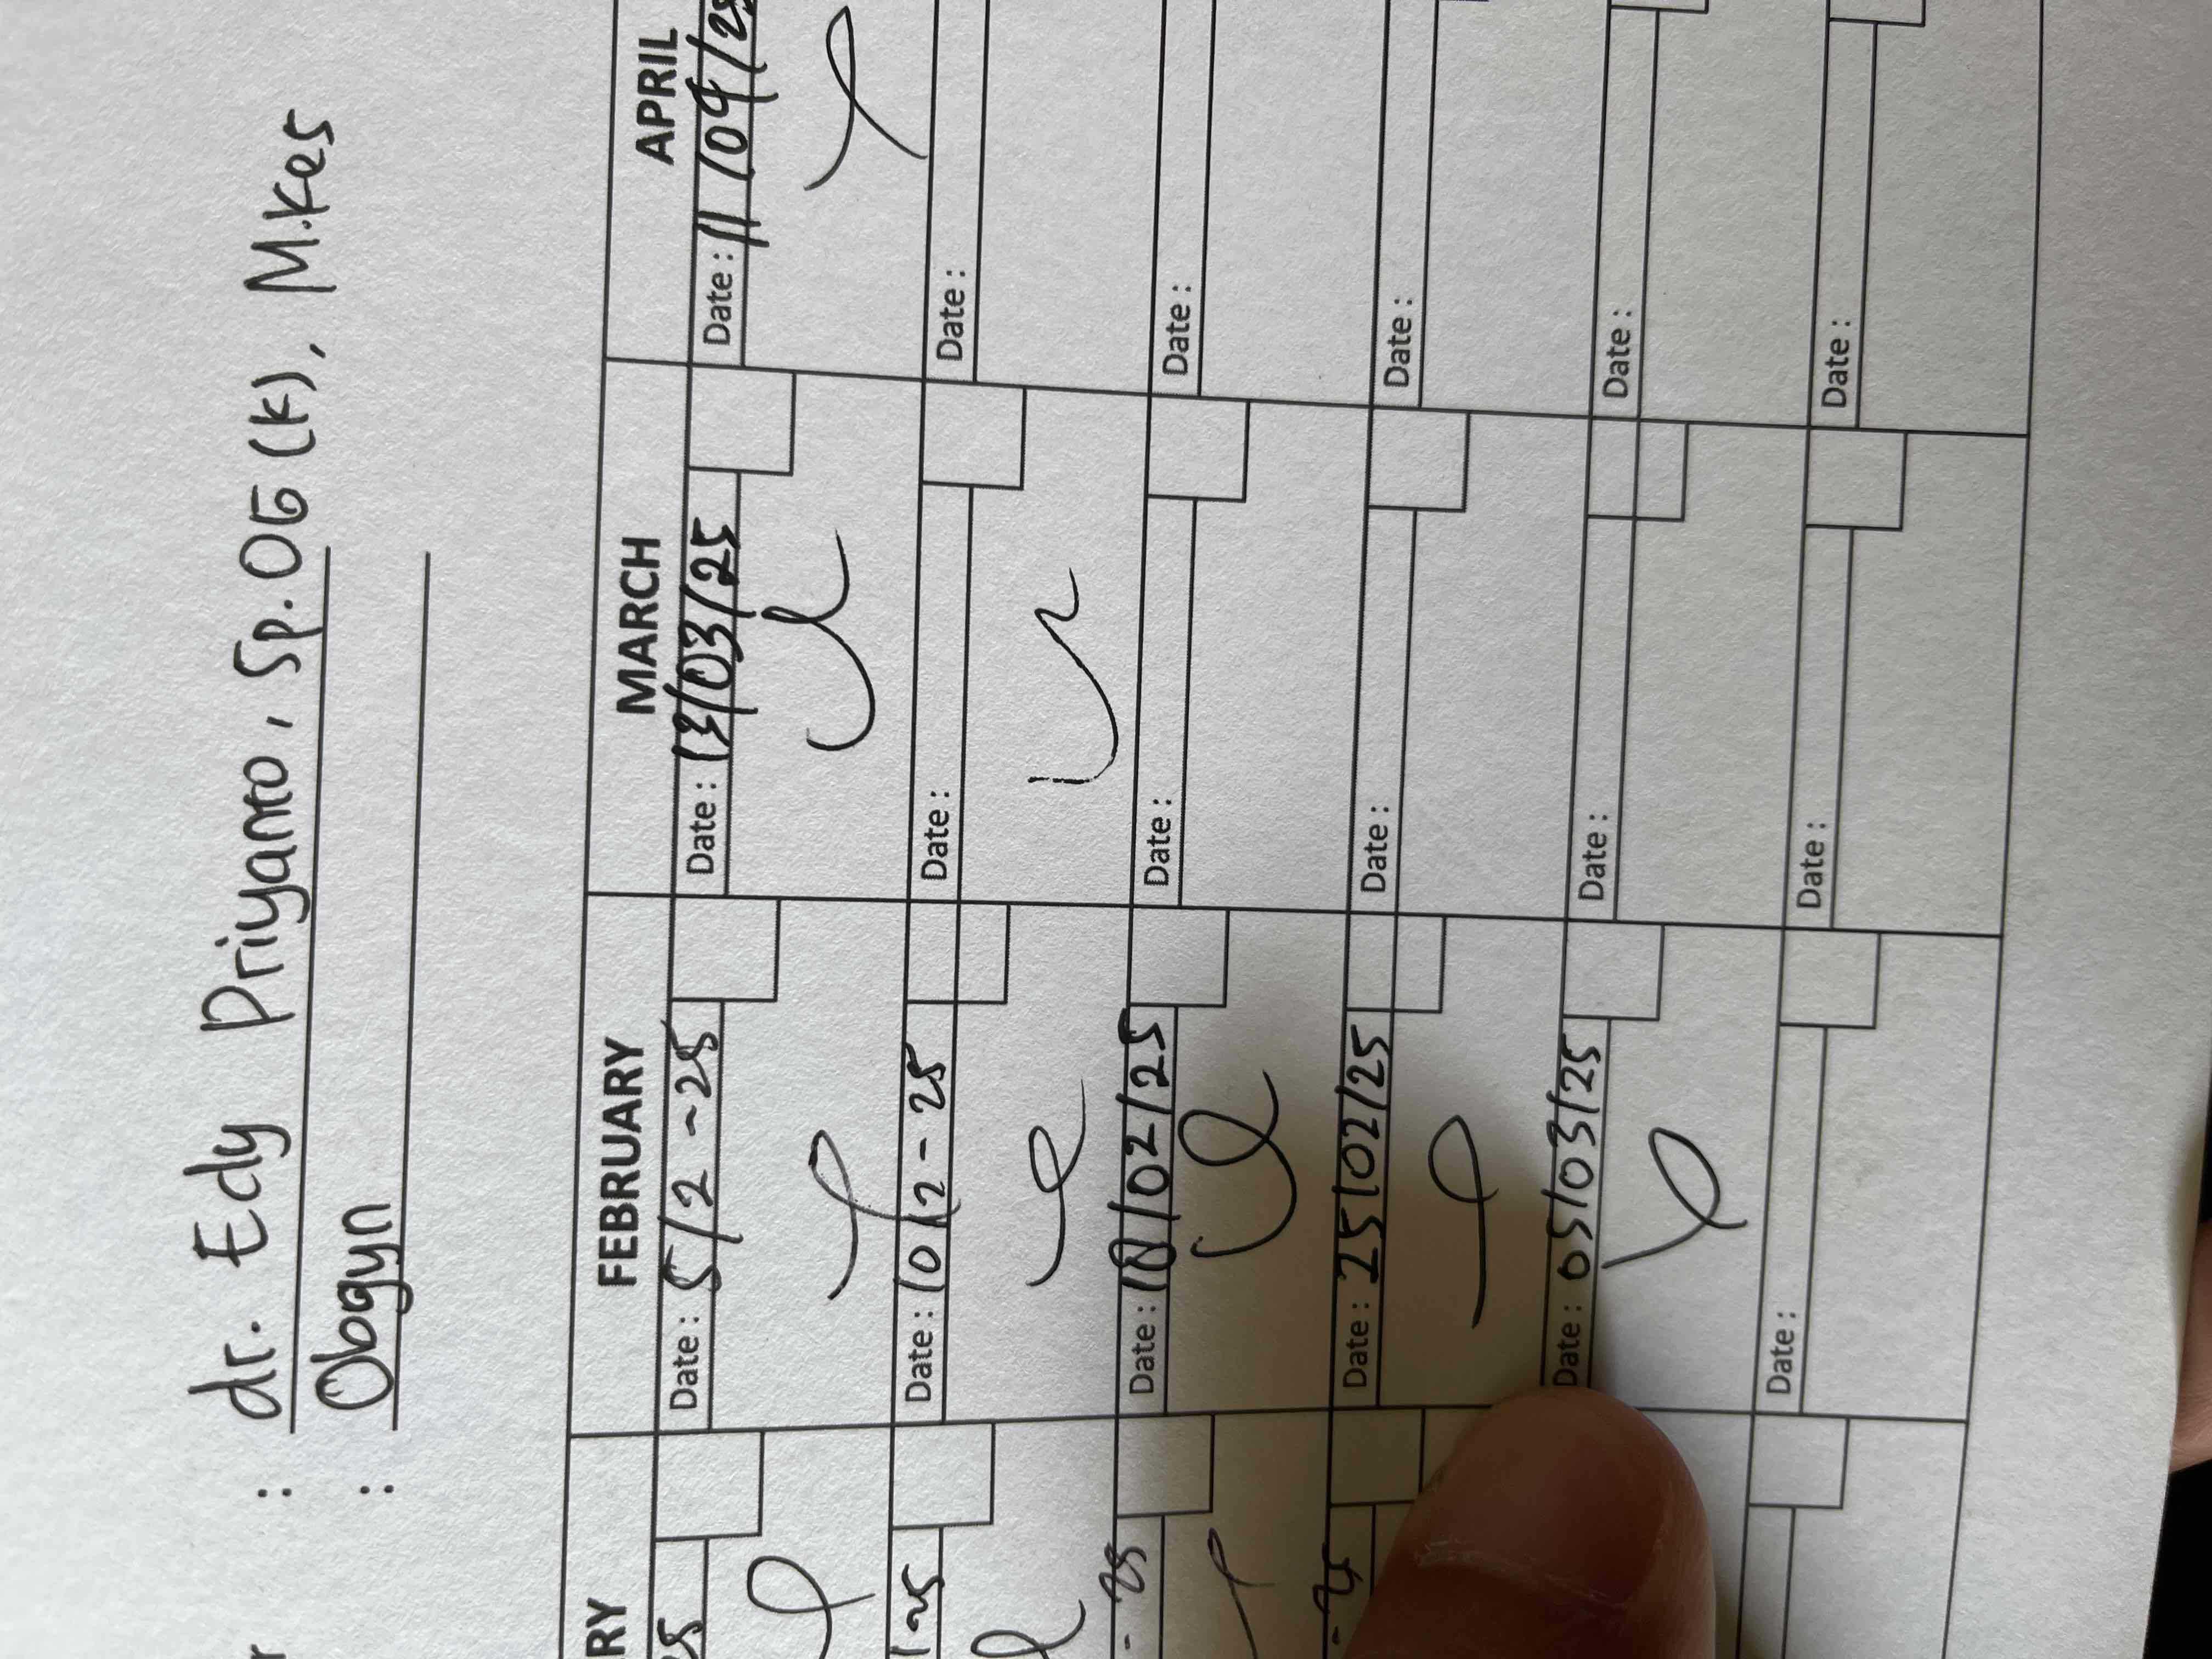 : dr. Edy Priyanto, Sp.OG (K), M.Kes
: Obgyn
FEBRUARY MARCH APRIL
Date : 5/2-25 Date : 13/03/25 Date : 11/04/25
Date : 10/2-25 Date : Date :
- 25 Date : 18/02/25 Date : Date :
Date : 25/02/25 Date : Date :
Date : 05/03/25 Date : Date :
Date : Date : Date :